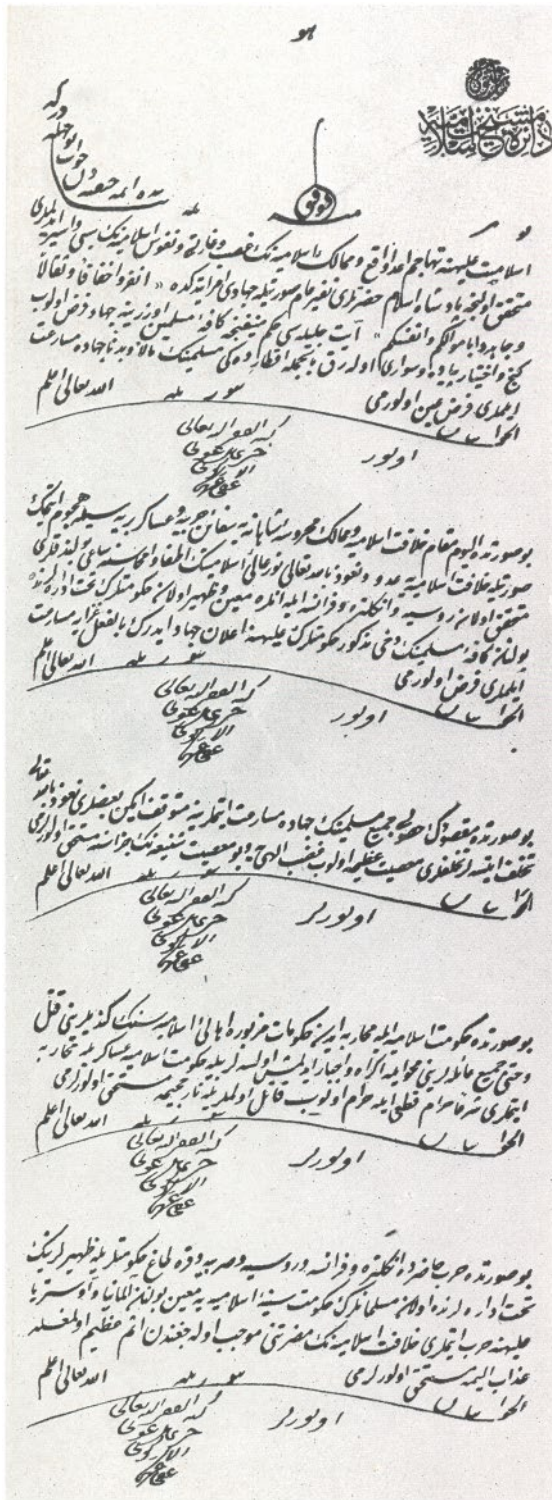 هو
دائره مشيخت اسلاميه
بو مسئله
ائمه حنفيه دن جواب نه وجهله در كه
اسلاميت عليهنه تهاجم اعدا واقع وممالك اسلاميه نك غصب وغارتى ونفوس اسلاميه نك سبى واسير ايدلمه لرى
متحقق اولنجه پادشاه اسلام حضرتلرى نفير عام صورتيله جهادى امر ايتدكده « انفروا خفافا وثقالا
وجاهدوا باموالكم وانفسكم » آيت جليله سى حكم منيفنجه كافه مسلمين اوزرينه جهاد فرض اولوب
كنج واختيار پياده وسوارى اوله رق بالجمله اقطارده كى مسلمينك مالا وبدنا جهاده مسارعت
ايتملرى فرض عين اولورمى بيان بيوريله
الجواب الله تعالى اعلم
اولور
كتبه الفقير اليه تعالى
خيرى بن عونى
الاركوبى
عفى عنهما
بو صورتده اليوم مقام خلافت اسلاميه وممالك محروسه شاهانه يه سفائن حربيه وعساكر بريه سيله هجوم ايتمك
صورتيله خلافت اسلاميه يه عدو ونعوذ بالله تعالى نور عالى اسلاميتك اطفاسنه ساعى بولندقلرى
متحقق اولان روسيه وانكلتره وفرانسه ايله آنلره معين وظهير اولان حكومتلرك تحت اداره لرنده
بولنان كافه مسلمينك دخى مذكور حكومتلرك عليهنه اعلان جهاد ايدرك بالفعل غزايه مسارعت
ايتملرى فرض اولورمى بيان بيوريله
الجواب الله تعالى اعلم
اولور
كتبه الفقير اليه تعالى
خيرى بن عونى
الاركوبى
عفى عنهما
بو صورتده مقصودك حصولى جميع مسلمينك جهاده مسارعت ايتملرينه متوقف ايكن بعضلرى نعوذ بالله تعالى
تخلف ايتسه لر تخلفلرى معصيت عظيمه اولوب غضب الهى يه وبو معصيت شنيعه نك جزاسنه مستحق اولورلرمى
الجواب الله تعالى اعلم
اولورلر
كتبه الفقير اليه تعالى
خيرى بن عونى
الاركوبى
عفى عنهما
بو صورتده حكومت اسلاميه ايله محاربه ايدن حكومات مزبوره اهالى اسلاميه سنك كنديلرينى قتل
وحتى جميع عائله لرينى محو ايله اكراه واجبار ايدلمش اولسه لر بيله حكومت اسلاميه عساكريله محاربه
ايتملرى شرعا حرام قطعى ايله حرام اولوب قاتل اولمغله نار جحيمه مستحق اولورلرمى
الجواب الله تعالى اعلم
اولورلر
كتبه الفقير اليه تعالى
خيرى بن عونى
الاركوبى
عفى عنهما
بو صورتده حرب حاضرده انكلتره وفرانسه وروسيه وصربيه وقره طاغ حكومتلريله ظهيرلرينك
تحت اداره لرنده اولان مسلمانلرك حكومت سنيه اسلاميه يه معين بولنان المانيا واوستريا
عليهنه حرب ايتملرى خلافت اسلاميه نك مضرتنى موجب اوله جغندن اثم عظيم اولمغله
عذاب اليمه مستحق اولورلرمى بيان بيوريله
الجواب الله تعالى اعلم
اولورلر
كتبه الفقير اليه تعالى
خيرى بن عونى
الاركوبى
عفى عنهما